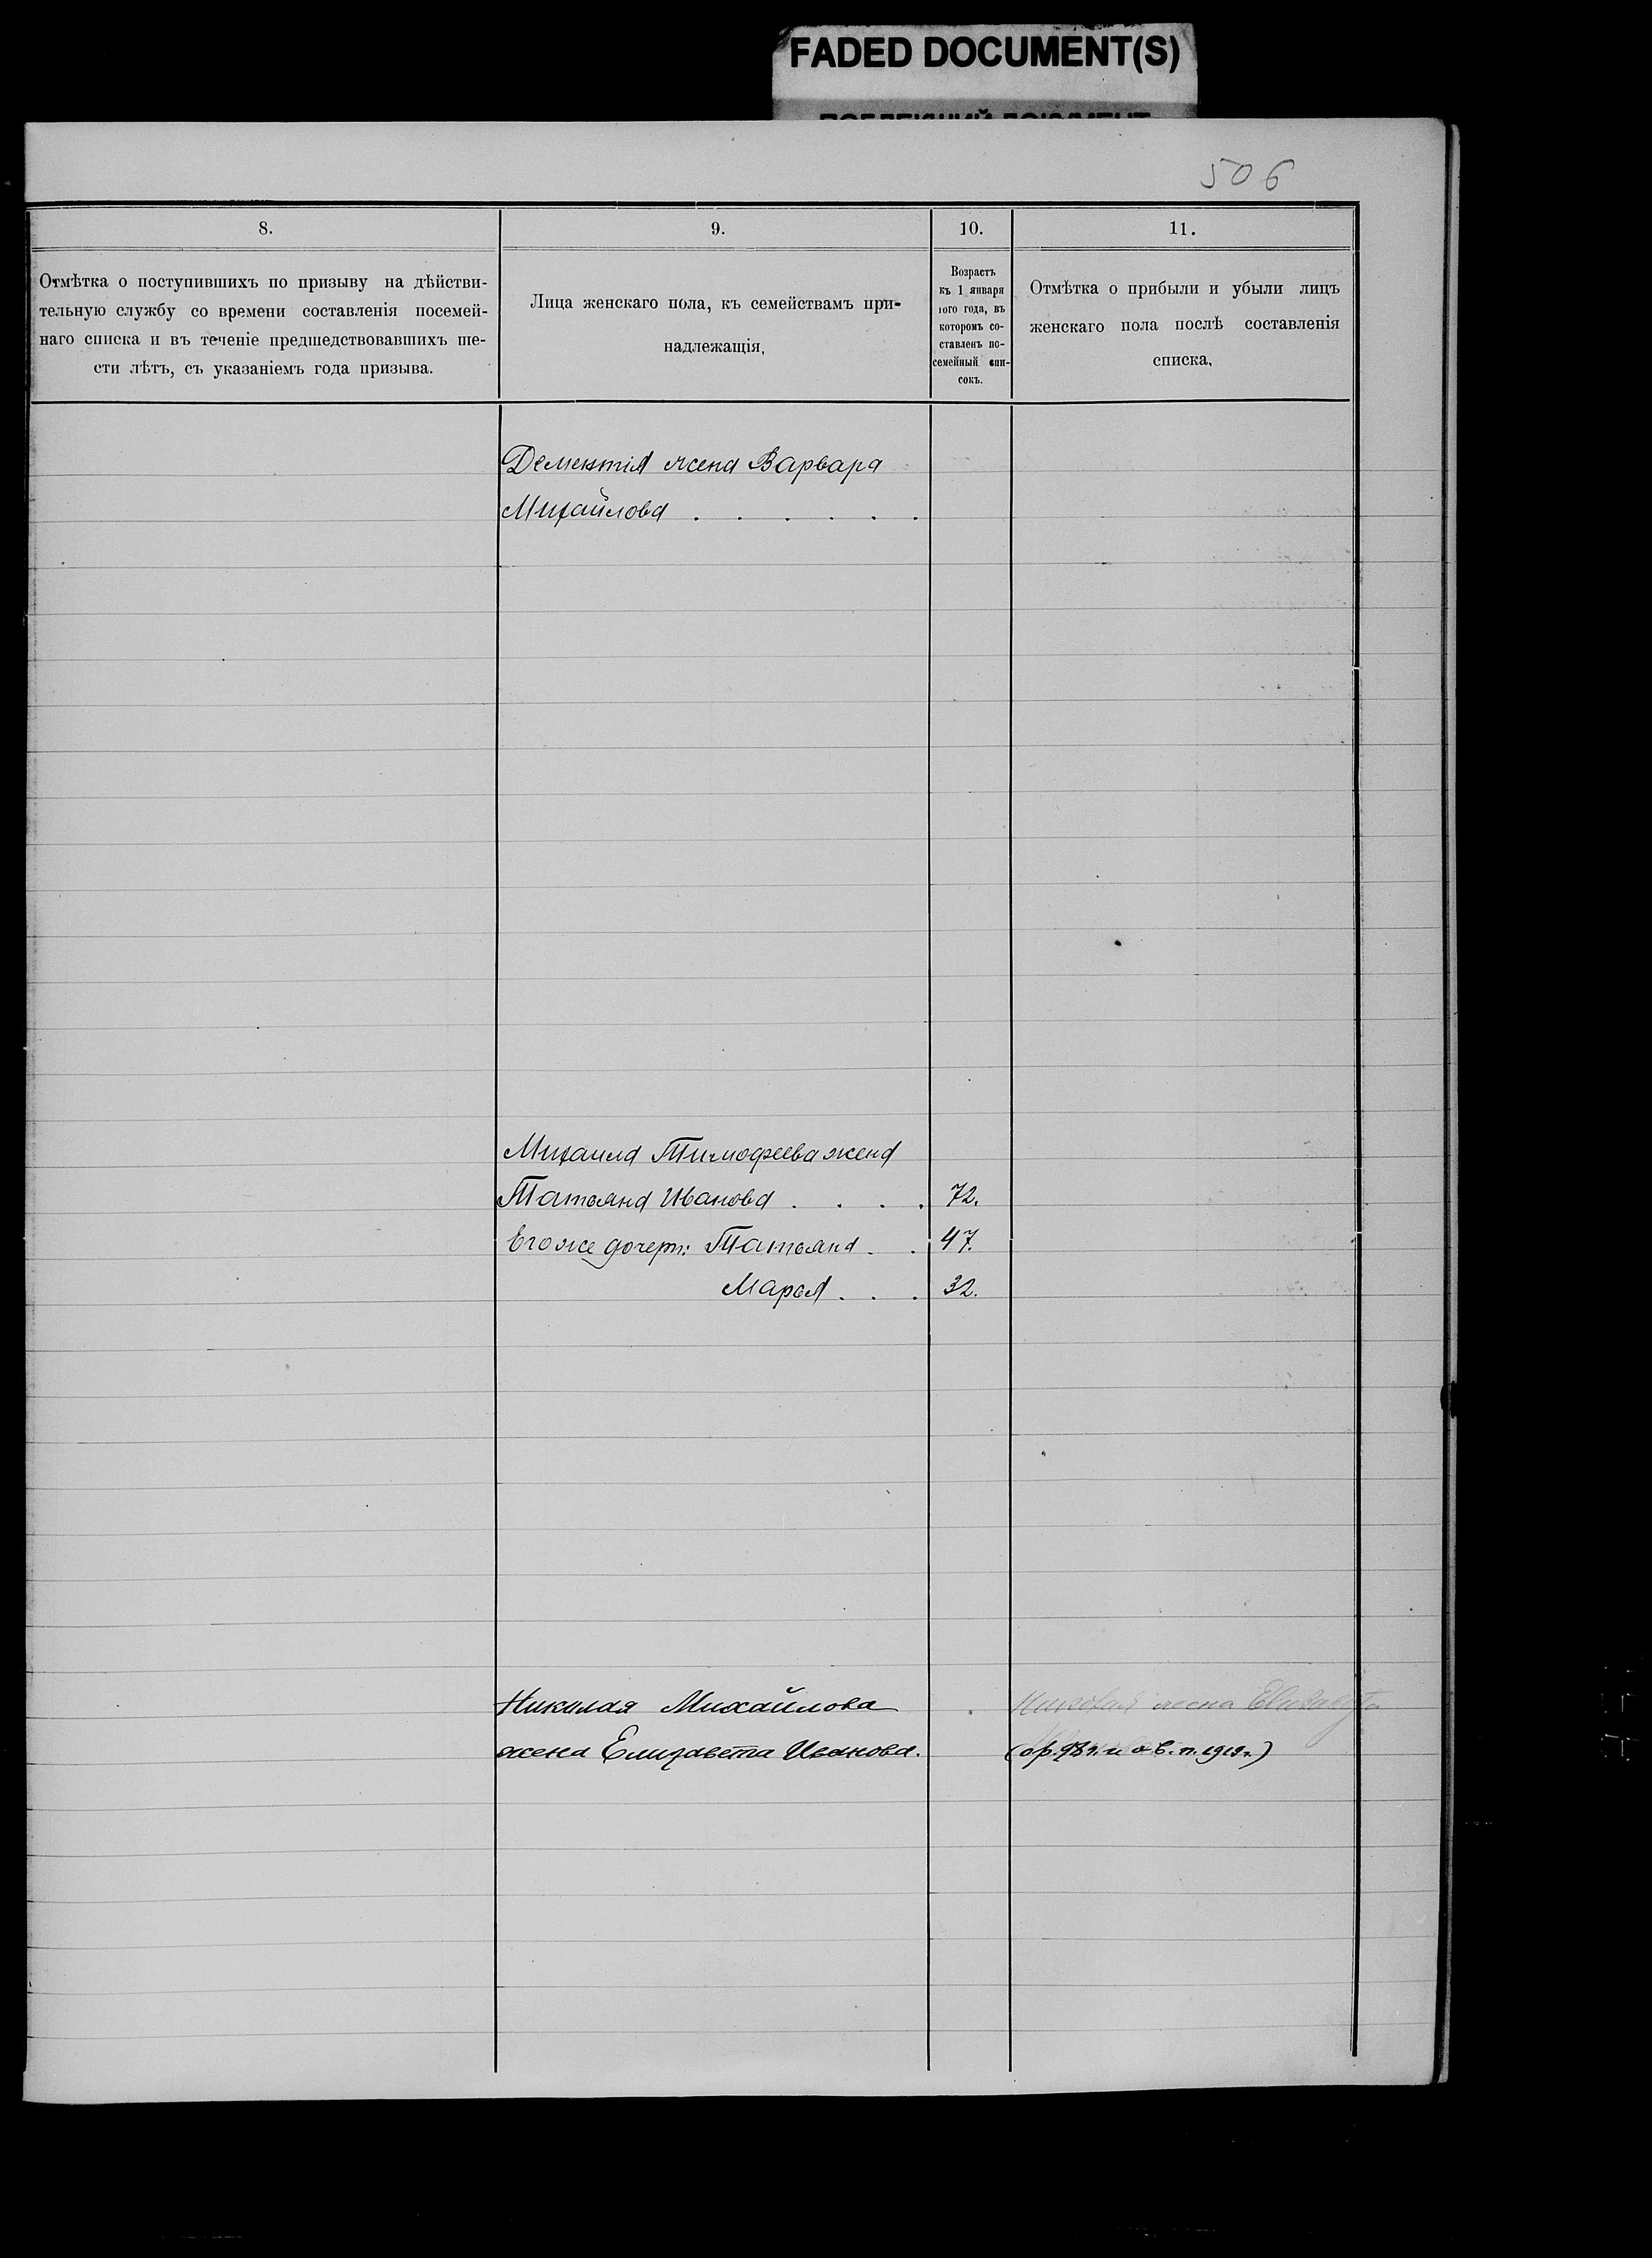 FADED DOCUMENT(S)
506
8.
9.
10.
11.
Отмѣтка о поступившихъ по призыву на дѣйстви-
тельную службу со времени составленія посемей-
наго списка и въ теченіе предшедствовавшихъ ше-
сти лѣтъ, съ указаніемъ года призыва.
Лица женскаго пола, къ семействамъ при-
надлежащія.
Возрастъ
къ 1 января
того года, въ
которомъ со-
ставленъ по-
семейный спи-
сокъ.
Отмѣтка о прибыли и убыли лицъ
женскаго пола послѣ составленія
списка.
Дементія жена Варвара
Михайлова . . . . . .
Михаила Тимофеева жена
Татьяна Иванова . . . . 72.
Его же дочери: Татьяна . . 47.
Марья . . . 32.
Николая Михайлова
жена Елизавета Иванова.
Николая жена Елизавета